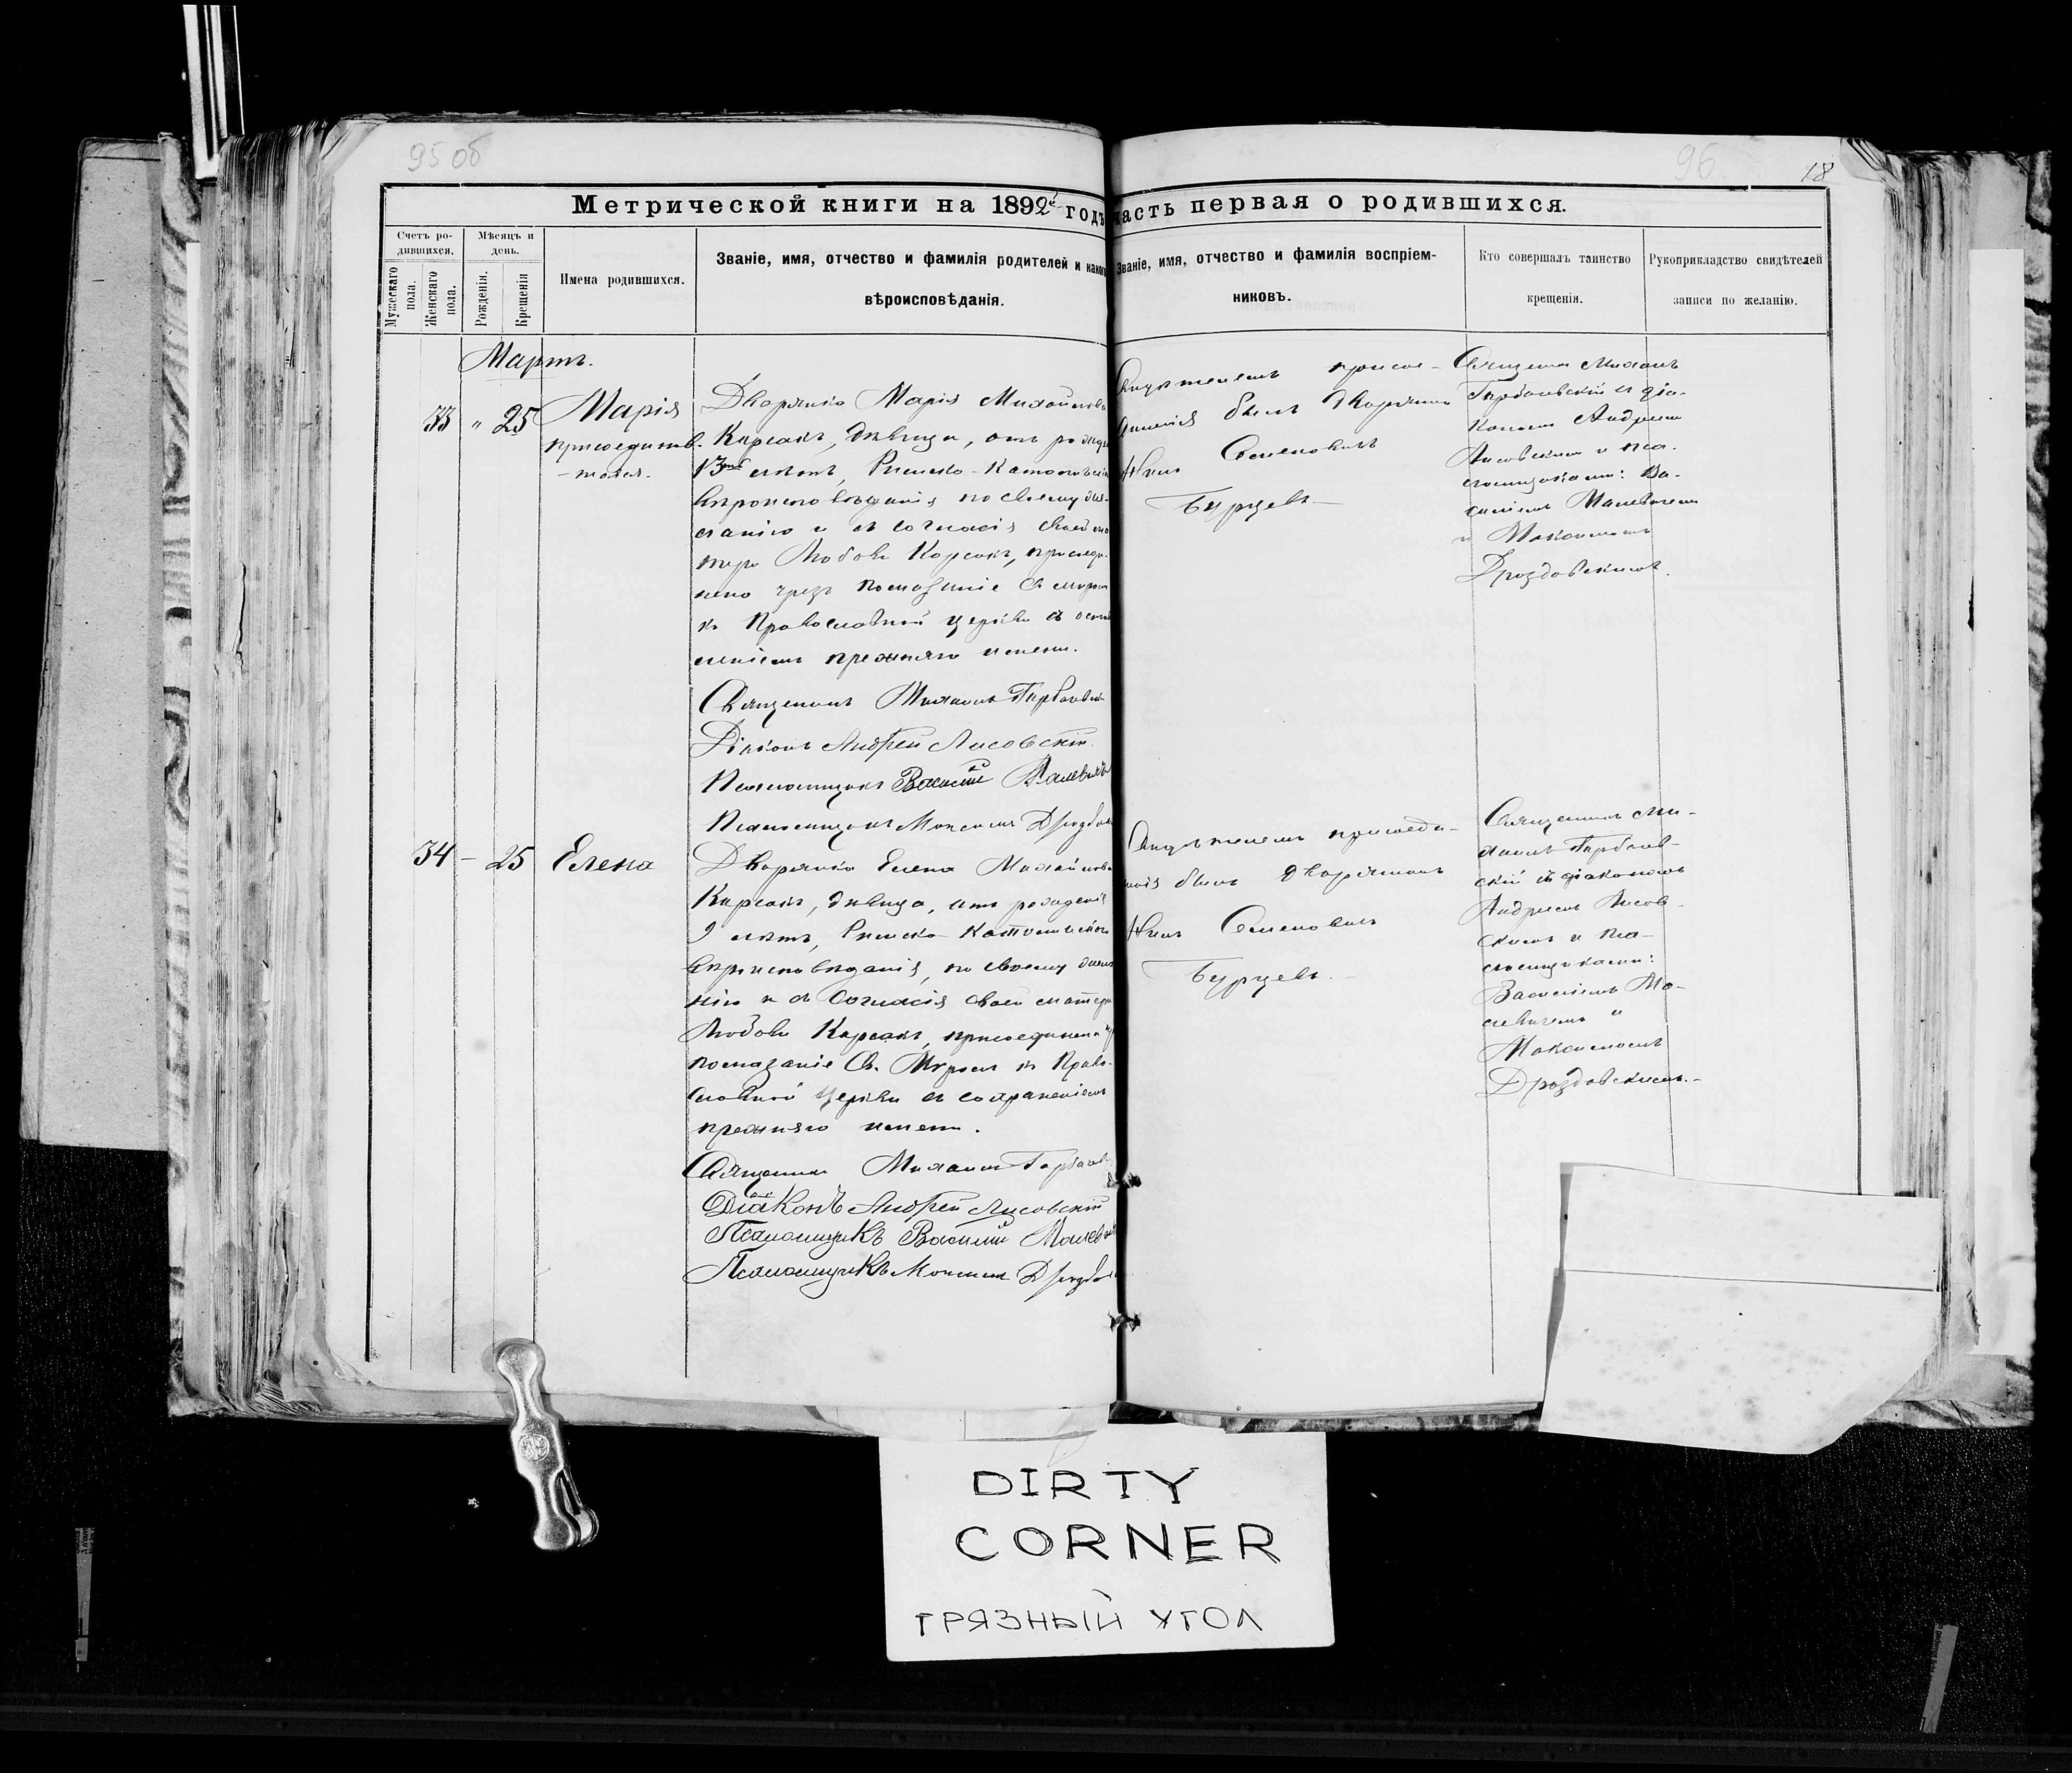 95 об
96
18
Метрической книги на 1892й годъ часть первая о родившихся.
Счетъ ро-
дившихся.
Мужескаго пола.
Женскаго пола.
Мѣсяцъ и день.
Рожденія.
Крещенія
Имена родившихся.
Званіе, имя, отчество и фамилія родителей и какого
вѣроисповѣданія.
Званіе, имя, отчество и фамилія воспріем-
никовъ.
Кто совершалъ таинство
крещенія.
Рукоприкладство свидѣтелей
записи по желанію.
Мартъ.
33 " 25 Марія
Дворянка Марія Михайлова
Карсакъ, дѣвица, отъ
лѣтъ, Римско-
вѣроисповѣданія по своему
и съ согласія своей
Любови Карсакъ,
чрезъ помазаніе Св. миромъ
къ Православной церкви съ
прежняго имени.
Священникъ Михаилъ
Діаконъ Андрей Лисовскій.
Псаломщикъ Василій
Псаломщикъ Максимъ
былъ дворянинъ
Семеновичъ
Бурцевъ
Михаилъ
и діа-
кономъ Андреемъ
Лисовскимъ и пса-
ломщиками: Ва-
силіемъ Малевичемъ
и Максимомъ
Дроздовскимъ.
34 - 25 Елена
Дворянка Елена Михайлова
Карсакъ, дѣвица, отъ рожденія
9 лѣтъ, Римско-Католическаго
вѣроисповѣданія, по своему
и съ согласія своей матери
Любови Карсакъ, присоединена
помазаніе Св. Муромъ къ Право-
славной Церкви съ сохраненіемъ
прежняго имени.
Священникъ Михаилъ
Діаконъ Андрей Лисовскій
Псаломщикъ Василій
Псаломщикъ Максимъ
былъ дворянинъ
Семеновичъ
Бурцевъ.
Священникъ Ми-
хаилъ
скій съ діакономъ
Андреемъ Лисов-
скимъ и пса-
ломщиками:
Василіемъ Ма-
левичемъ и
Максимомъ
Дроздовскимъ.
DIRTY
CORNER
ГРЯЗНЫЙ УГОЛ